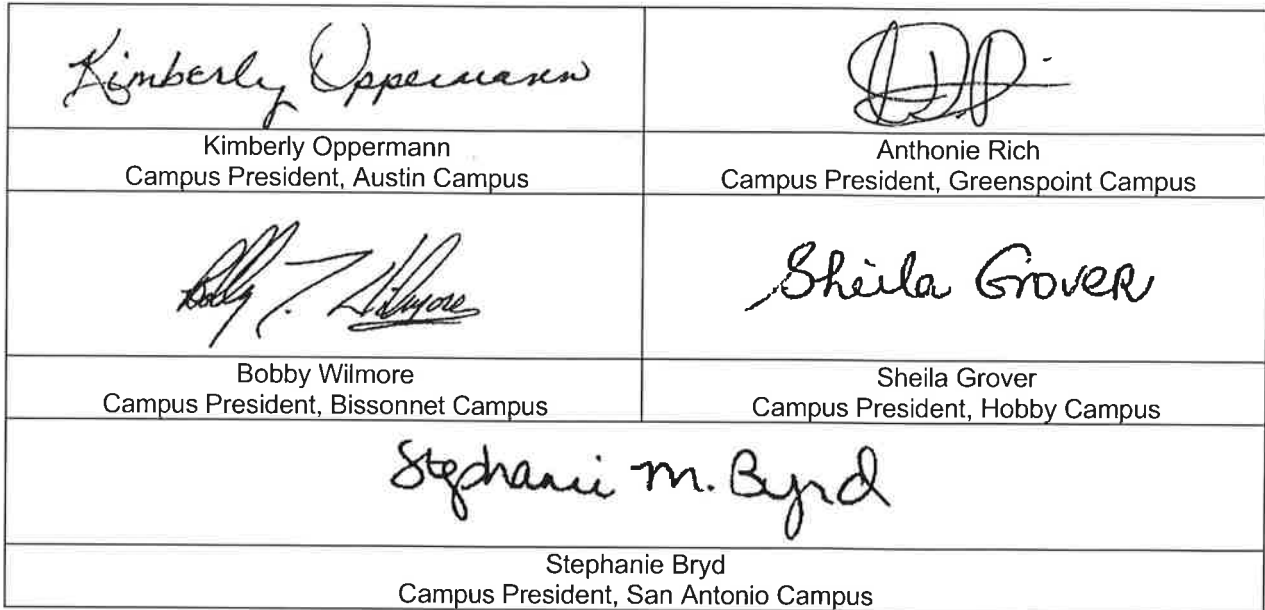 Kimberly Oppermann
Kimberly Oppermann
Campus President, Austin Campus
Anthonie Rich
Campus President, Greenspoint Campus
Bobby T. Wilmore
Bobby Wilmore
Campus President, Bissonnet Campus
Sheila Grover
Sheila Grover
Campus President, Hobby Campus
Stephanie M. Byrd
Stephanie Bryd
Campus President, San Antonio Campus